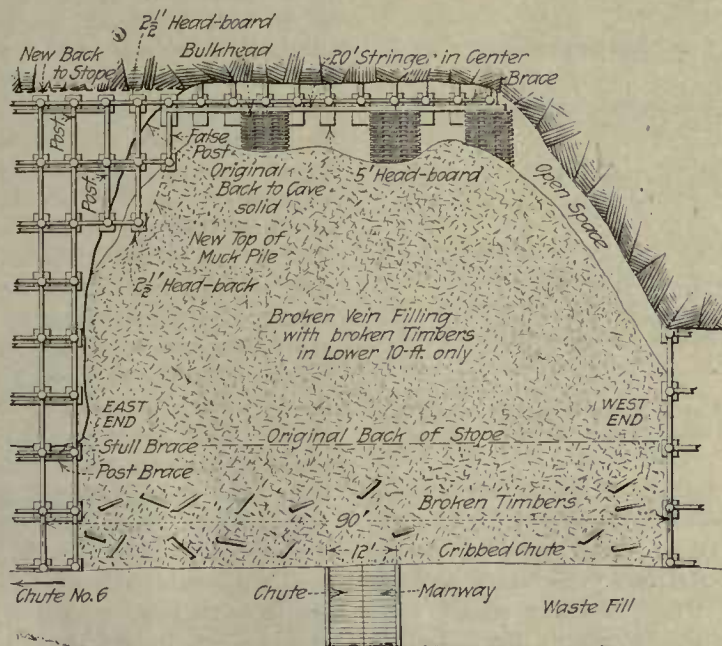 2½' Head-board
Bulkhead
New Back
to Stope
20' Stringer in Center
Brace
Post
False
Post
Post
Original
Back to Cave
solid
5' Head-board
Open Space
New Top of
Muck Pile
2½' Head-back
Broken Vein Filling
with broken Timbers
in Lower 10-ft only
EAST
END
WEST
END
Original Back of Stope
Stull Brace
Post Brace
Broken Timbers
90'
12'
Cribbed Chute
Chute No.6
Chute
Manway
Waste Fill